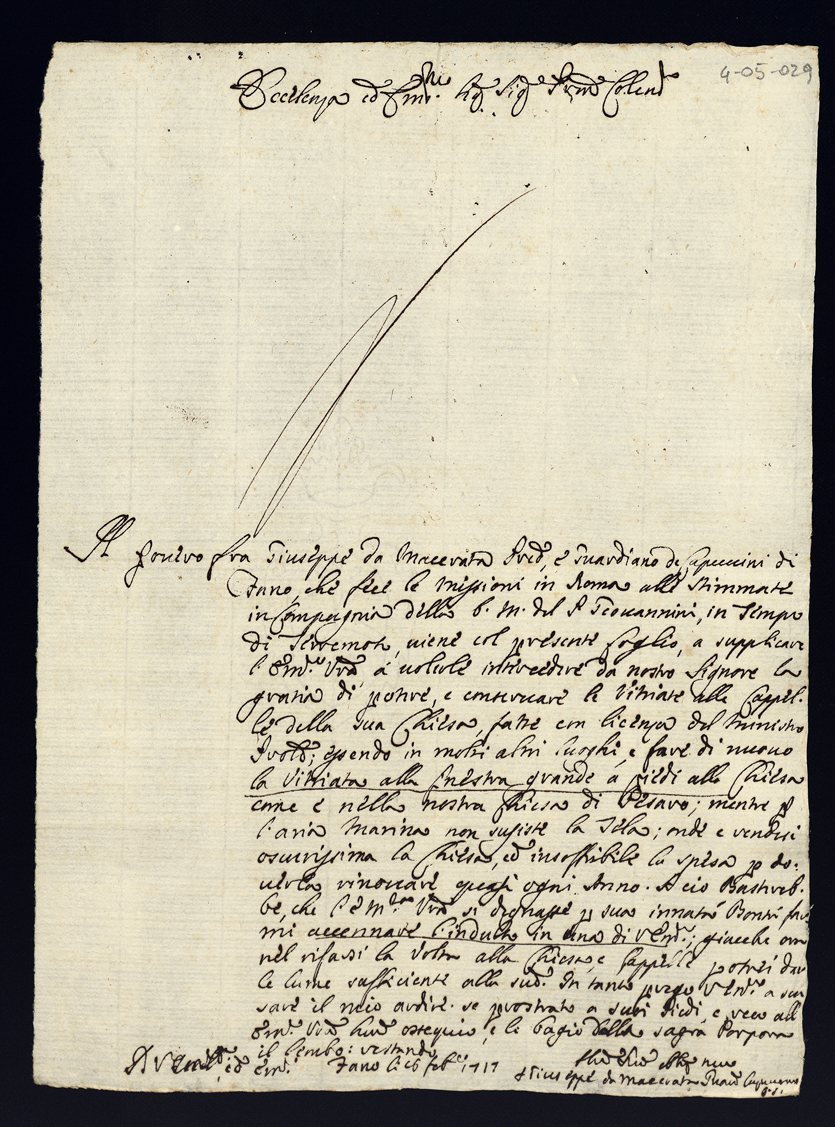 4-05-029
Eccelenza ed Em.mo Sig. Sig.e Prone Colend.o
Il Povero fra Giuseppe da Macerata Pred.e, e Guardiano de Capuccini di
Fano, che fece le Missioni in Roma alle Stimmate
in Compagnia della b. m. del P. Giovannini, in Tempo
di Terremoto, viene col presente foglio, a supplicare
l'Em.za Vra à volerle intercedere da nostro Signore la
gratia di potere, e conservare le Vitriate alle Cappel-
le della sua Chiesa, fatte con licenza del Ministro
Prole; essendo in molti altri luoghi, e fare di nuovo
la Vitriata alla finestra grande à piedi alla Chiesa
come è nella nostra Chiesa di Pesaro; mentre p
l'aria Marina non susiste la Tela; onde e vendesi
oscurissima la Chiesa, ed insoffribile la spesa p do-
verla rinovare quasi ogni Anno. A ciò Bastareb-
be, che l'Em.za Vra si degnasse p sua innata Bontà far
mi accennare l'indulto in una di V. Em.za; giacche ora
nel rifarsi la Volta alla Chiesa, e Cappelle potrei dar
le lume sufficiente alla sud.a In tanto prego V. Em.za a scu
sare il mio ardire. se prostrato a suoi piedi, e reco all
Em.za Vra hum. ossequio, e le bagio della sagra Porpora
il lembo: restando
D V. Em.za, ed Em.
Fano li 26 feb.o 1717
Giuseppe da Macerata Guard. Capuccino